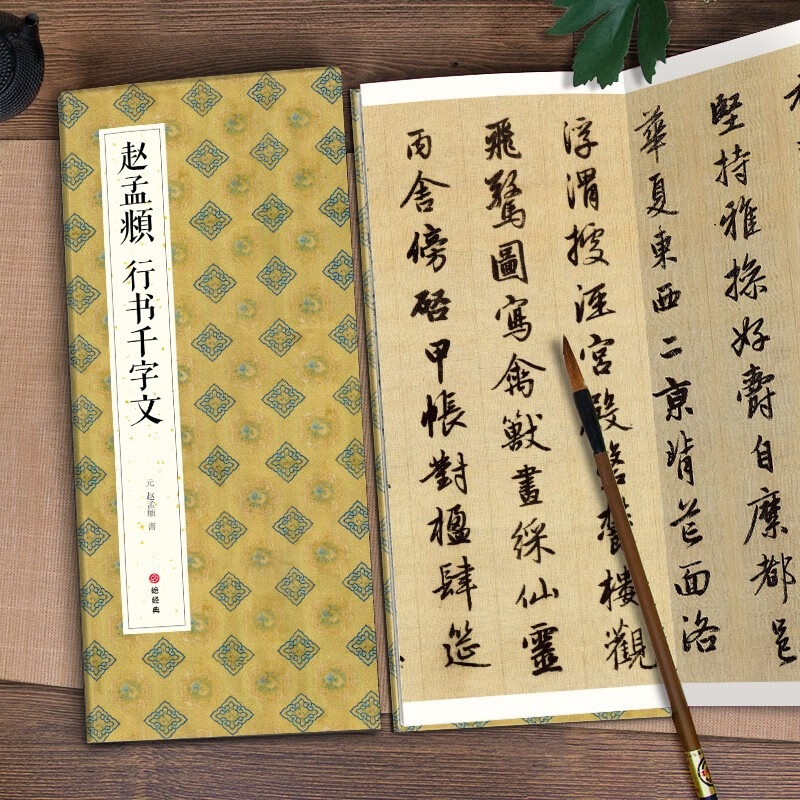 赵孟頫 行书千字文
元 赵孟頫 書
经典
堅持雅操好爵自縻都邑
華夏東西二京背芒面洛
浮渭據涇宮殿盤鬱樓觀
飛驚圖寫禽獸畫綵仙靈
丙舍傍啓甲帳對楹肆筵